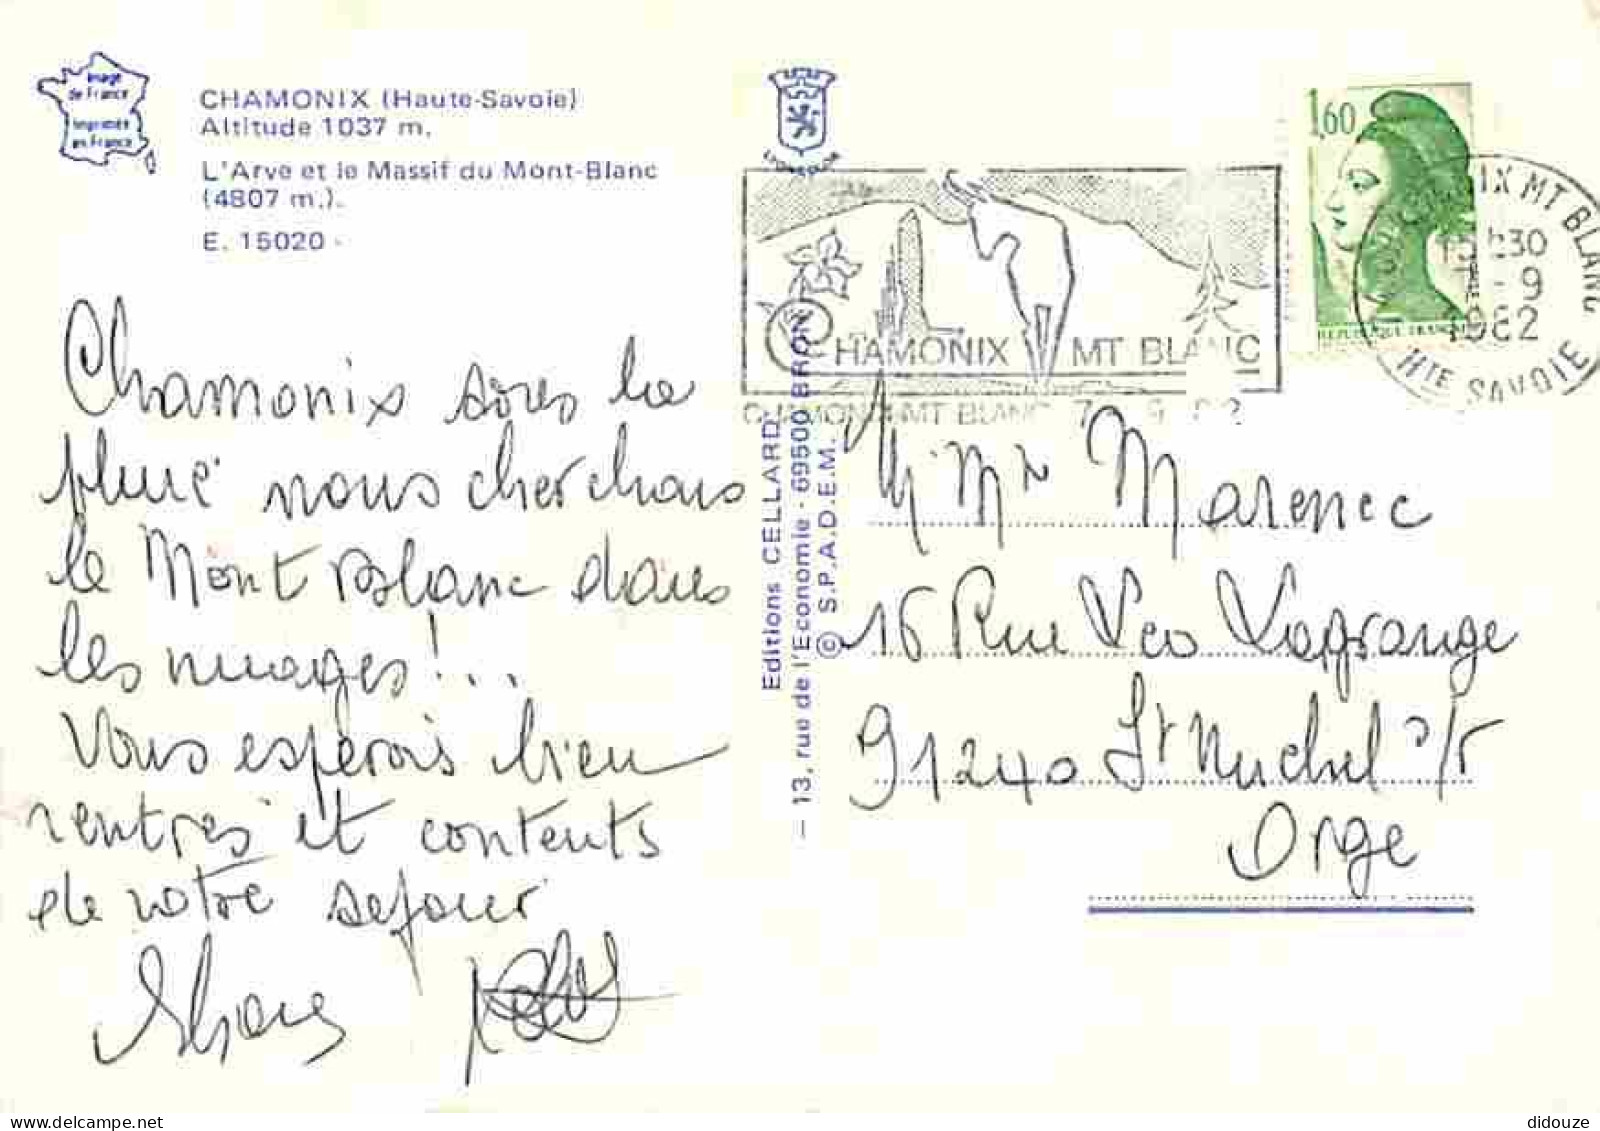 Image
de France
Imprimée
en France
CHAMONIX (Haute-Savoie)
Altitude 1037 m.
L'Arve et le Massif du Mont-Blanc
(4807 m.).
E. 15020 -
Chamonix sous la
pluie nous cherchons
le Mont Blanc dans
les nuages !...
Vous esperons bien
rentrés et contents
de votre sejour
Editions CELLARD
— 13, rue de l'Economie - 69500 BRON
© S.P.A.D.E.M.
LYONCOLOR
CHAMONIX MT BLANC
CHAMONIX-MT BLANC 7 - 9 82
1,60
REPUBLIQUE FRANCAISE
CHAMONIX MT BLANC
15h30
7 - 9
1982
HTE SAVOIE
M. Mme Marenec
16 Rue Léo Lagrange
91240 St Michel s/r
Orge
didouze